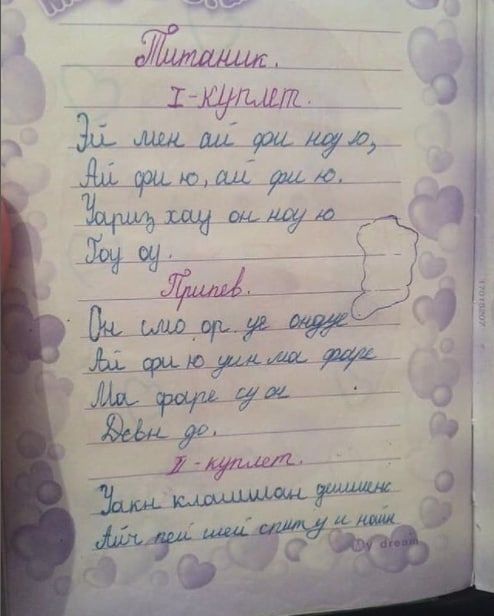 Титаник.
I-куплет.
Эй мен ай фи ноу ю,
Ай фи ю, ай фи ю.
Уариз хау он ноу ю
Гоу оу.
Припев.
Он смо ор. уе ондуе
Ай фи ю уин ма фаре
Ма фаре су он
Девн до.
II-куплет.
Уакн клашилан дешиенс
Айч пей шей спит у и найн
My dream
17016207